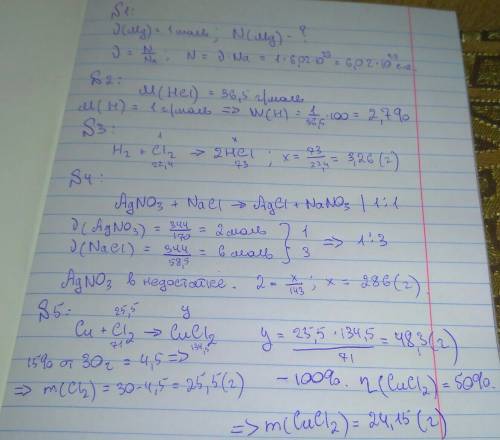 S1:
ν(Mg) = 1 моль; N(Mg) - ?
ν = N/Na; N = ν·Na = 1·6,02·10²³ = 6,02·10²³
S2:
M(HCl) = 36,5 г/моль
M(H) = 1 г/моль => W(H) = 1/36,5 · 100 = 2,7%
S3:
1 x
H₂ + Cl₂ → 2HCl ; x = 73/22,4 = 3,26 (г)
22,4 73
S4:
AgNO₃ + NaCl → AgCl + NaNO₃ | 1:1
ν(AgNO₃) = 344/170 = 2 моль } 1
ν(NaCl) = 344/58,5 = 6 моль } 3 => 1:3
AgNO₃ в недостатке. 2 = x/143 ; x = 286 (г).
S5:
25,5 y
Cu + Cl₂ → CuCl₂ y = 25,5 · 134,5 / 71 = 48,3 (г)
71 134,5
15% от 30 г = 4,5 =>
=> m(Cl₂) = 30 - 4,5 = 25,5 (г) - 100%. η(CuCl₂) = 50%
=> m(CuCl₂) = 24,15 (г)